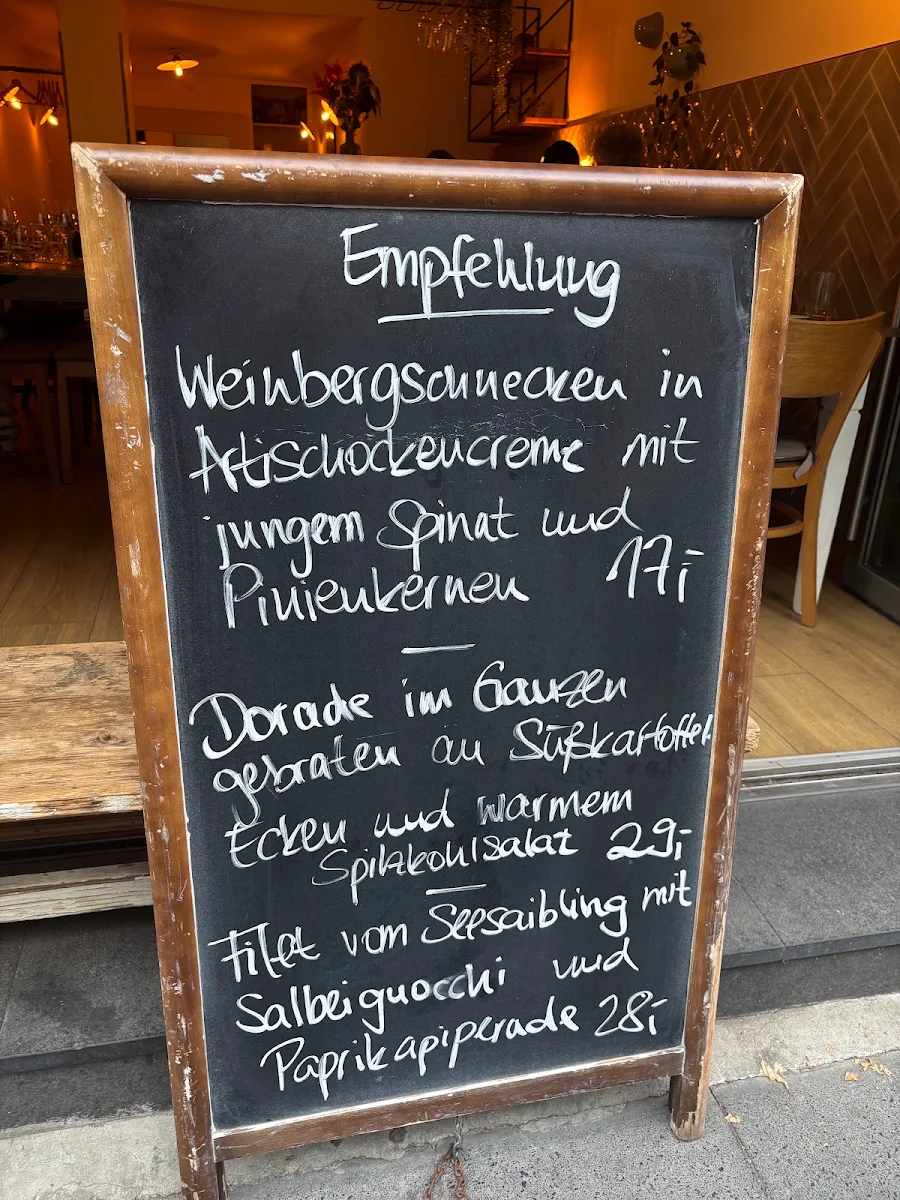 Empfehlung
Weinbergschnecken in
Artischockencreme mit
jungem Spinat und
Pinienkernen 17,-
Dorade im Ganzen
gebraten an Süßkartoffel
Ecken und warmem
Spitzkohlsalat 29,-
Filet vom Seesaibling mit
Salbeignocchi und
Paprikapiperade 28,-